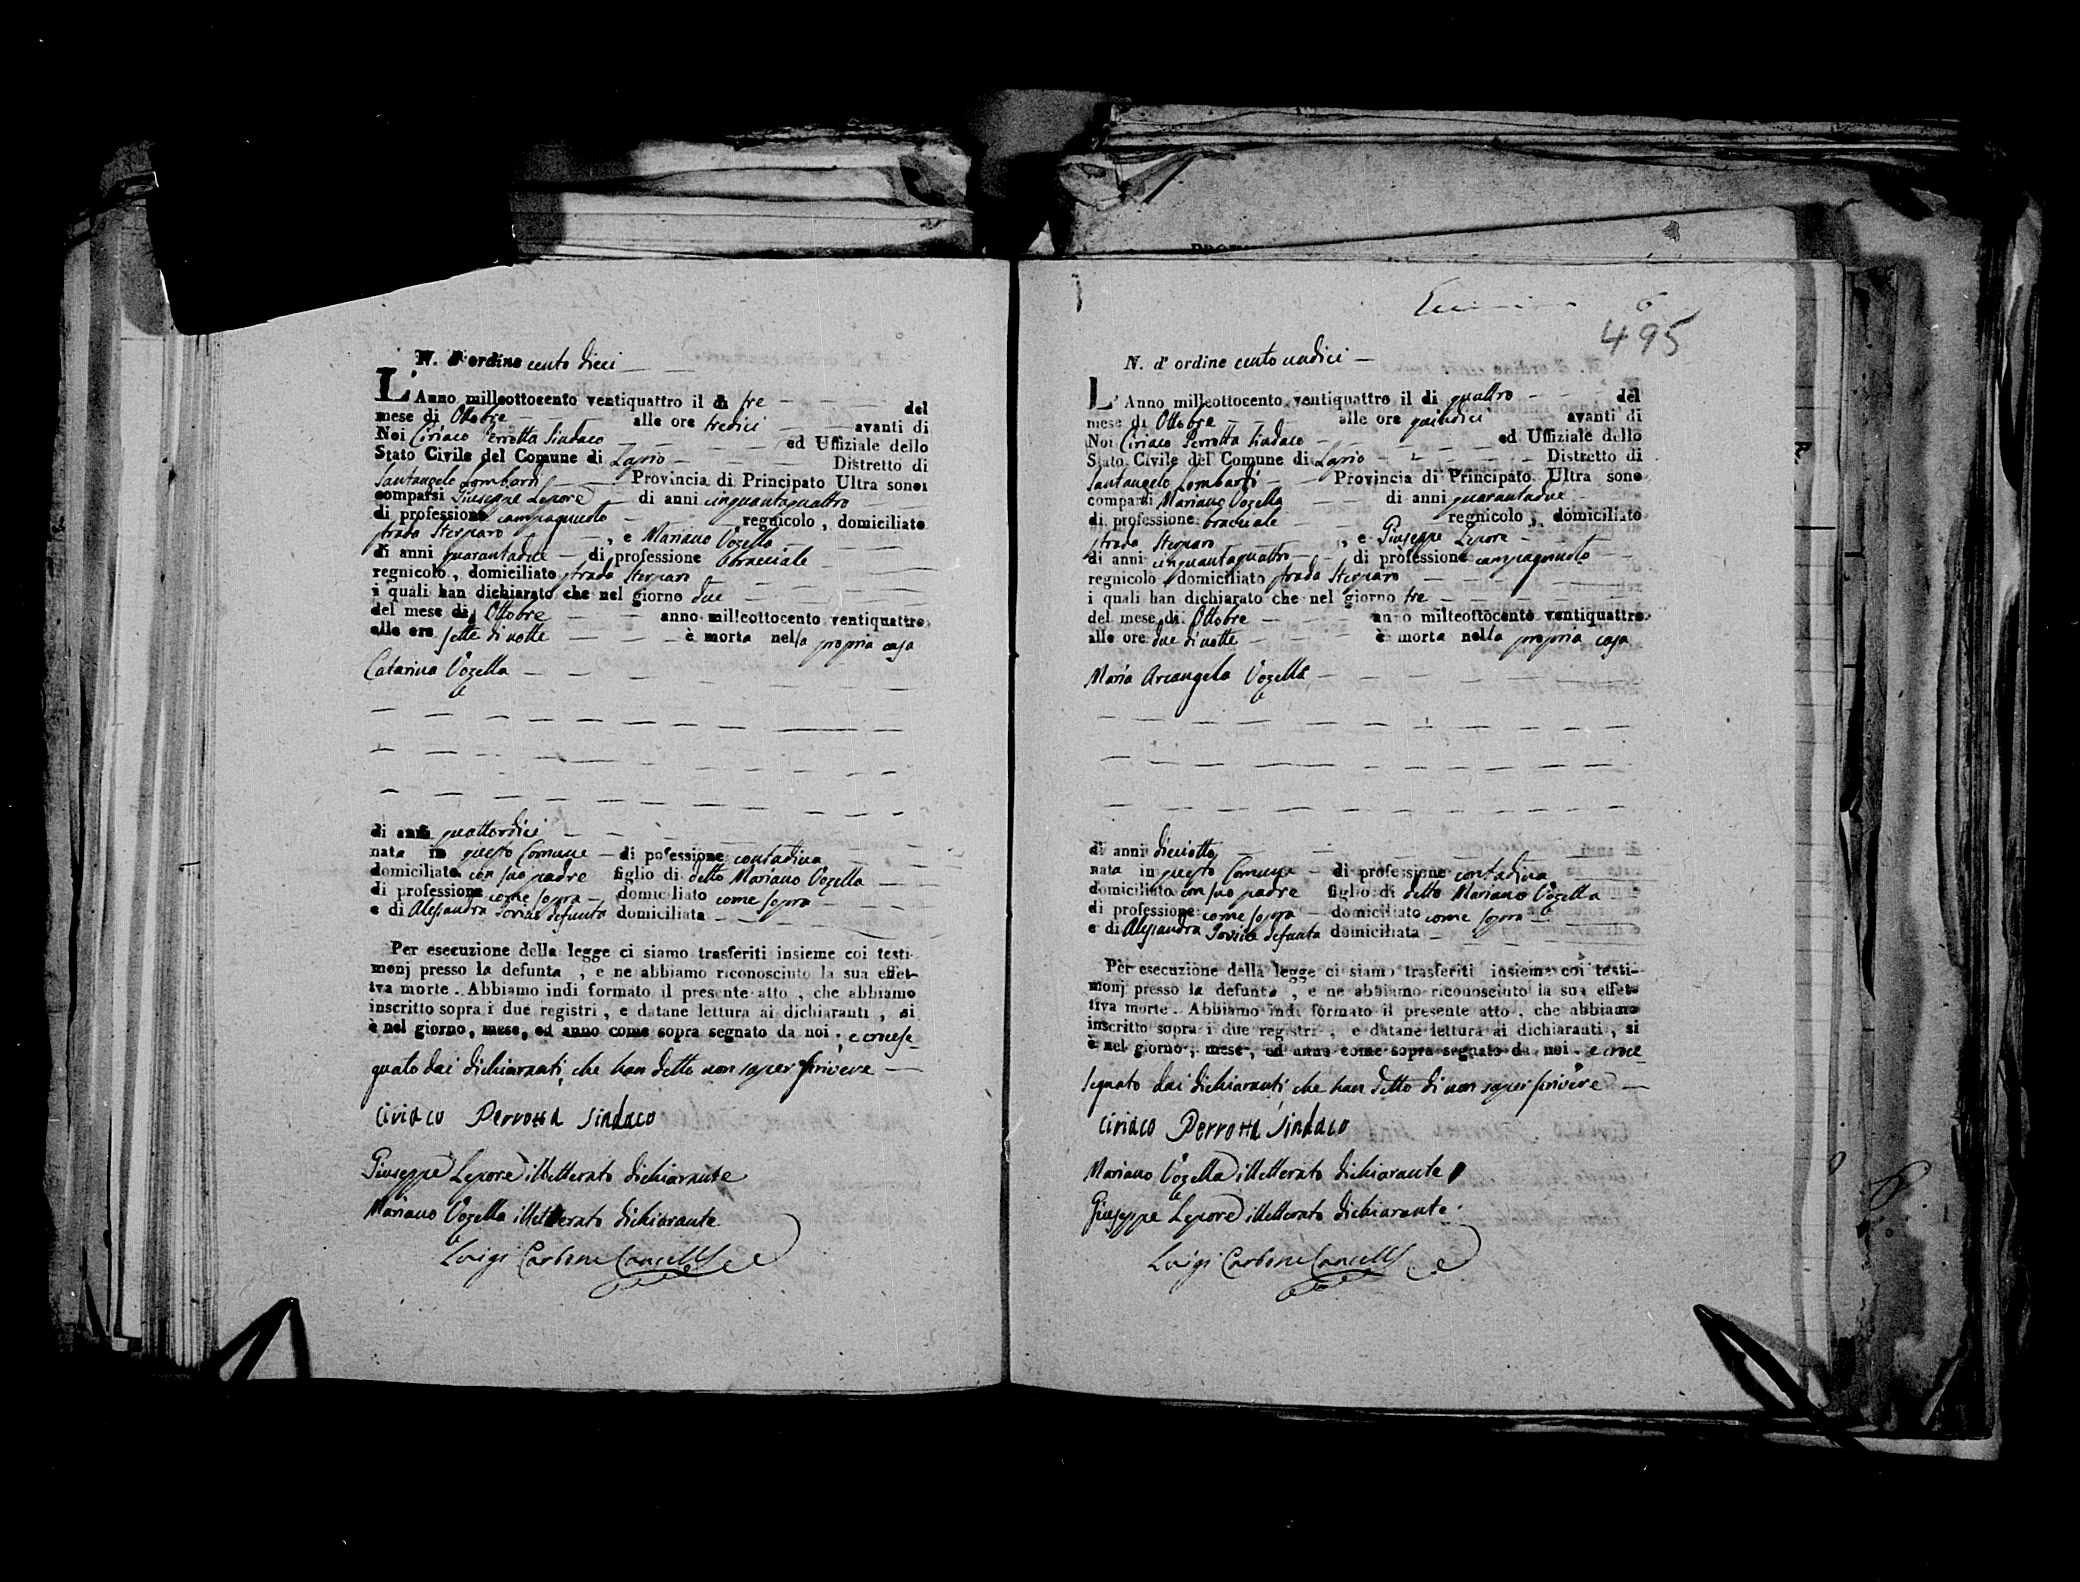 N. d'ordine cento dieci
L'Anno milleottocento ventiquattro il di tre del
mese di Ottobre alle ore tredici avanti di
Noi Ciriaco Perrotta Sindaco ed Uffiziale dello
Stato Civile del Comune di Distretto di
Santangelo Lombardi Provincia di Principato Ultra sono
comparsi Giuseppe Lepore di anni cinquantaquattro
di professione campagnuolo regnicolo, domiciliato
strada Sterparo, e Mariano Vozella
di anni quarantadue di professione bracciale
regnicolo, domiciliato strada Sterparo
i quali han dichiarato che nel giorno due
del mese di Ottobre anno milleottocento ventiquattro
alle ore sette di notte è morta nella propria casa
Catarina Vozella
di anni quattordici
nata in questo Comune di pofessione contadina
domiciliata con suo padre figlio di detto Mariano Vozella
di professione come sopra domiciliato come sopra
e di Alesandra defunta domiciliata
Per esecuzione della legge ci siamo trasferiti insieme coi testi-
monj presso la defunta, e ne abbiamo riconosciuto la sua effet-
tiva morte. Abbiamo indi formato il presente atto, che abbiamo
inscritto sopra i due registri, e datane lettura ai dichiaranti, si
è nel giorno, mese, ed anno come sopra segnato da noi, e crocese-
gnato dai dichiaranti, che han detto non saper scrivere
Ciriaco Perrotta Sindaco
Giuseppe Lepore illetterato dichiarante
Mariano Vozella illetterato dichiarante
Luigi Carbone
6
495
N. d'ordine cento undici
L'Anno milleottocento ventiquattro il di quattro del
mese di Ottobre alle ore quindici avanti di
Noi Ciriaco Perrotta Sindaco ed Uffiziale dello
Stato Civile del Comune di Distretto di
Santangelo Lombardi Provincia di Principato Ultra sono
comparsi Mariano Vozella di anni quarantadue
di professione bracciale regnicolo, domiciliato
strada Sterparo, e Giuseppe Lepore
di anni cinquantaquattro di professione campagnuolo
regnicolo, domiciliato strada Sterparo
i quali han dichiarato che nel giorno tre
del mese di Ottobre anno milleottocento ventiquattro
alle ore due di notte è morta nella propria casa
Maria Arcangela Vozella
di anni diciotto
nata in questo Comune di professione contadina
domiciliato con suo padre figlio di detto Mariano Vozella
di professione come sopra domiciliato come sopra
e di Alesandra defunta domiciliata
Per esecuzione della legge ci siamo trasferiti insieme coi testi-
monj presso la defunta, e ne abbiamo riconosciuto la sua effet-
tiva morte. Abbiamo indi formato il presente atto, che abbiamo
inscritto sopra i due registri, e datane lettura ai dichiaranti, si
è nel giorno, mese, ed anno come sopra segnato da noi. e croce
segnato dai dichiaranti, che han detto di non saper scrivere
Ciriaco Perrotta Sindaco
Mariano Vozella illetterato dichiarante
Giuseppe Lepore illetterato dichiarante.
Luigi Carbone